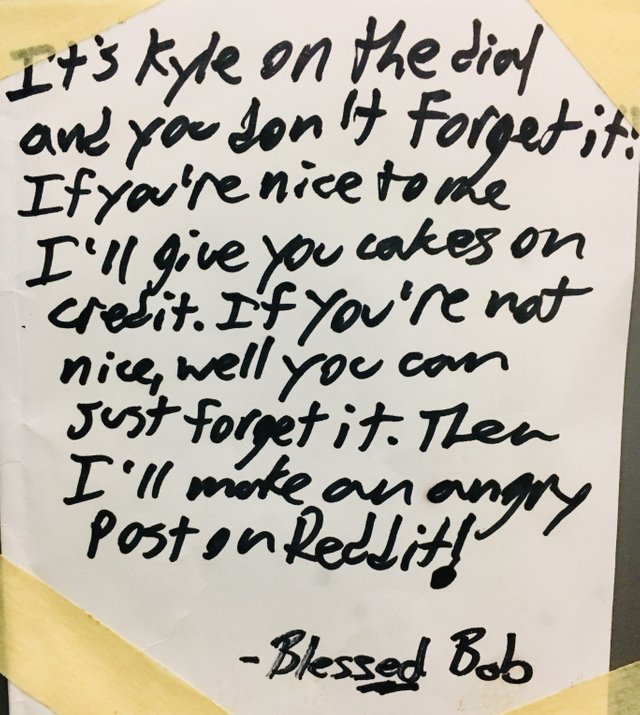 It's Kyle on the dial
and you don't forget it.
If you're nice to me
I'll give you cakes on
credit. If you're not
nice, well you can
just forget it. Then
I'll make an angry
Post on Reddit!
- Blessed Bob